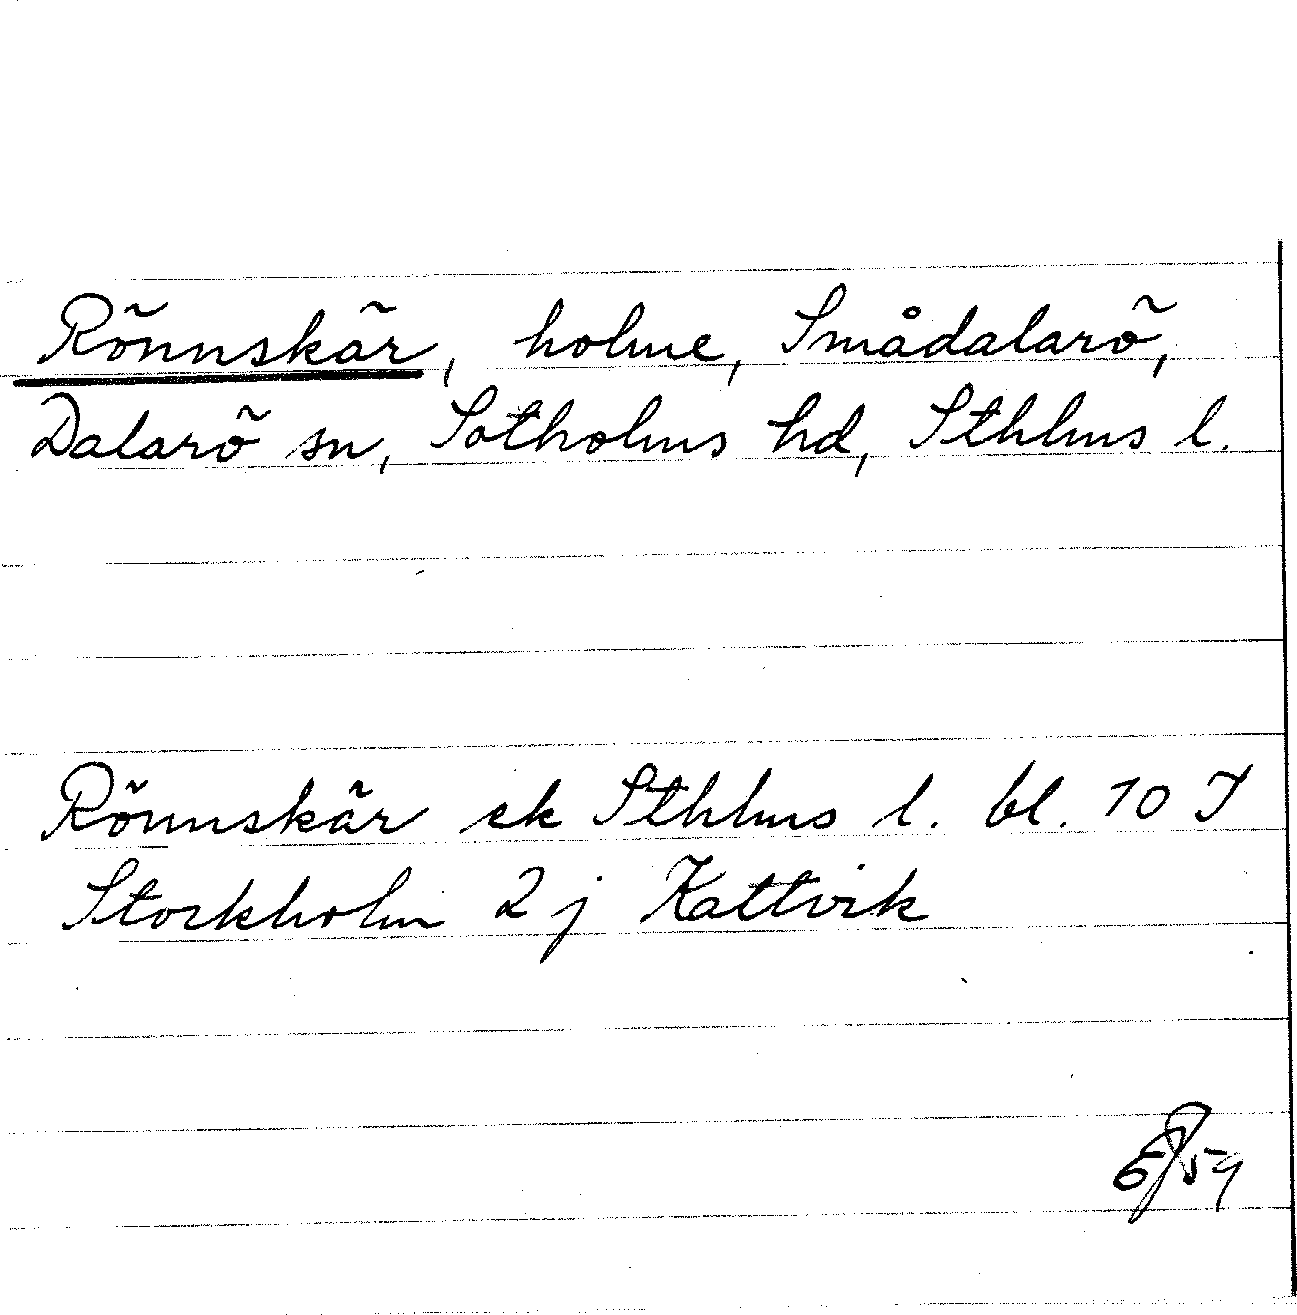 Rönnskär, holme, Smådalarö,
Dalarö sn, Sotholms hd, Sthlms l.
Rönnskär ek Sthlms l. bl. 10 I
Stockholm 2 j Kattvik